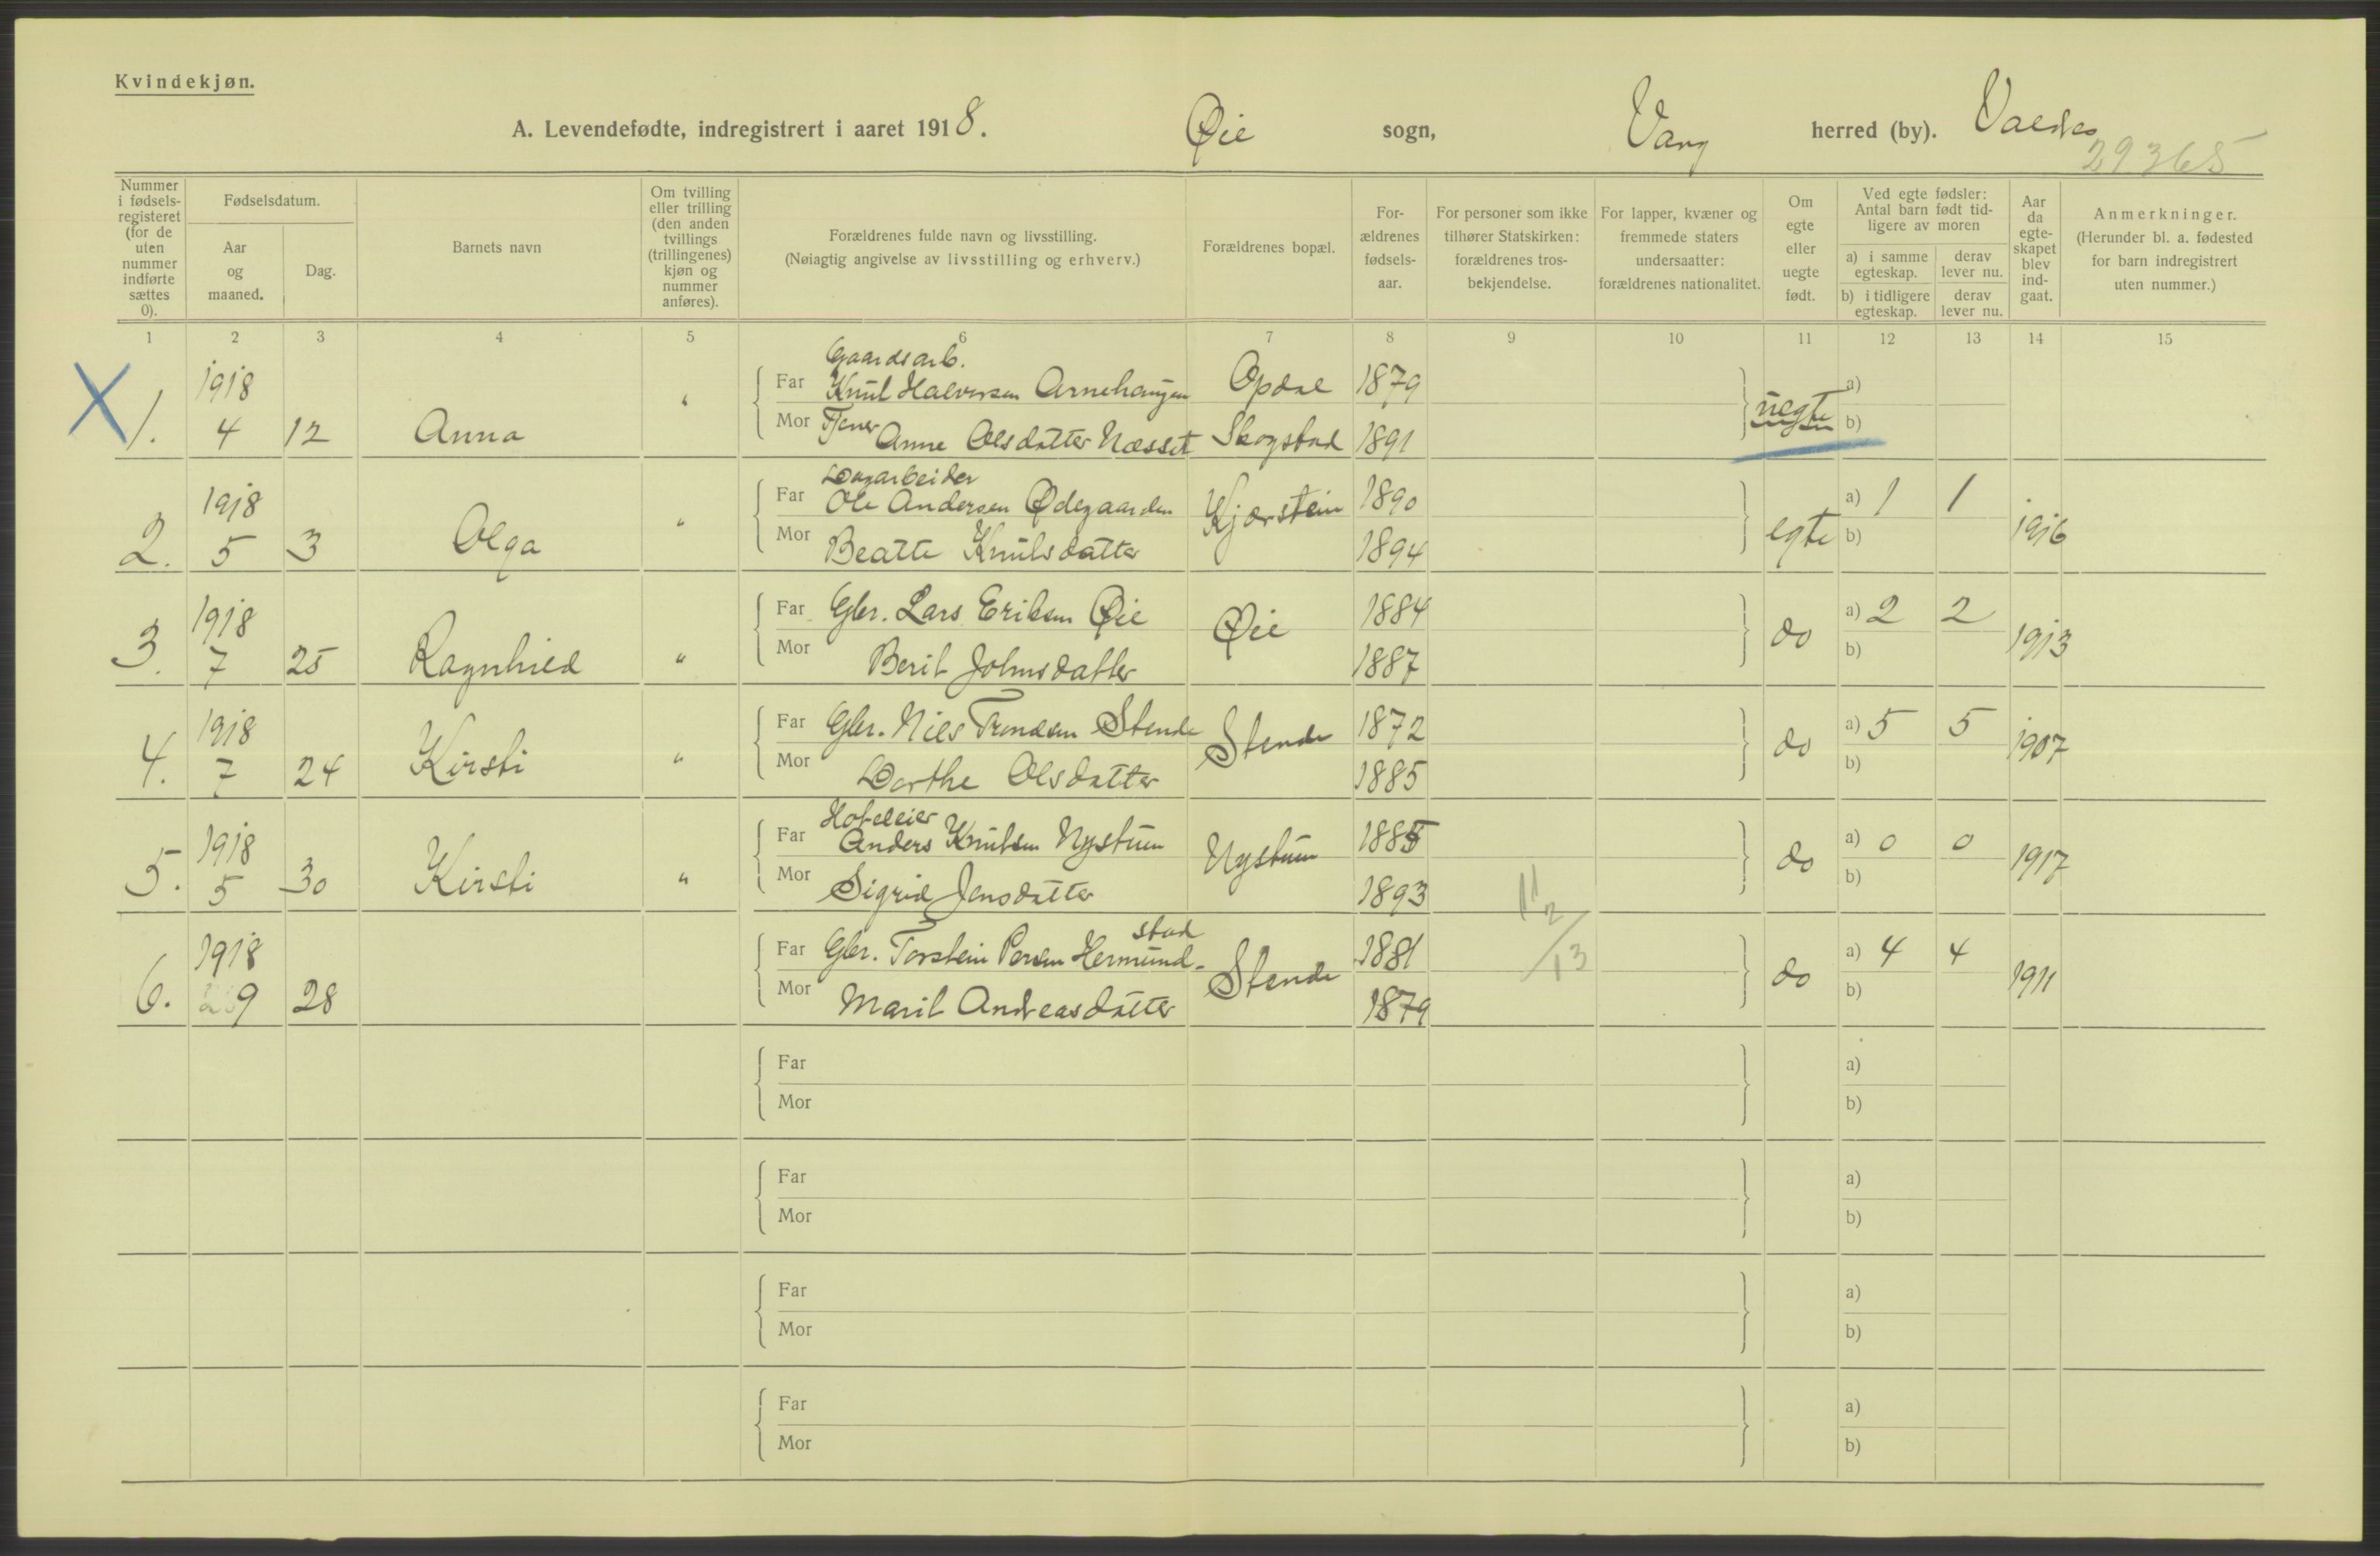 Kvindekjøn.
A. Levendefødte, indregistrert i aaret 1918. Øie sogn, Vang herred (by). Valdres
29365
Nummer i fødsels-registeret (for de uten nummer indførte sættes 0).
Fødselsdatum.
Aar og maaned.
Dag.
Barnets navn
Om tvilling eller trilling (den anden tvillings (trillingenes) kjøn og nummer anføres).
Forældrenes fulde navn og livsstilling.
(Nøiagtig angivelse av livsstilling og erhverv.)
Forældrenes bopæl.
For-ældrenes fødsels-aar.
For personer som ikke tilhører Statskirken: forældrenes tros-bekjendelse.
For lapper, kvæner og fremmede staters undersaatter: forældrenes nationalitet.
Om egte eller uegte født.
Ved egte fødsler: Antal barn født tid-ligere av moren
a) i samme egteskap.
derav lever nu.
b) i tidligere egteskap.
derav lever nu.
Aar da egte-skapet blev ind-gaat.
Anmerkninger.
(Herunder bl. a. fødested for barn indregistrert uten nummer.)
1 2 3 4 5 6 7 8 9 10 11 12 13 14 15
X
Gaardsarb.
1918 Far Knut Halvorsen Arnehaugen Opdal 1879 a)
1. 4 12 Anna " Mor Tjener Anne Olsdatter Næsset Skogstad 1891 uegte b)
Dagarbeider
1918 Far Ole Andersen Ødegaarden Kjørstein 1890 a) 1 1
2. 5 3 Olga " Mor Beatte Knutsdatter 1894 egte b) 1916
1918 Far Gbr. Lars Eriksen Øie Øie 1884 a) 2 2
3. 7 25 Ragnhild " Mor Berit Johnsdatter 1887 do b) 1913
1918 Far Gbr. Nils Trondsen Stende Stende 1872 a) 5 5
4. 7 24 Kirsti " Mor Dorthe Olsdatter 1885 do b) 1907
Hoteleier
1918 Far Anders Knutsen Nystuen Nystuen 1885 a) 0 0
5. 5 30 Kirsti " Mor Sigrid Jensdatter 1893 do b) 1917
11
2/13
stad
1918 Far Gbr. Torstein Persen Hermund- Stende 1881 a) 4 4
6. 9 28 Mor Marit Andreasdatter 1879 do b) 1911
Far a)
Mor b)
Far a)
Mor b)
Far a)
Mor b)
Far a)
Mor b)